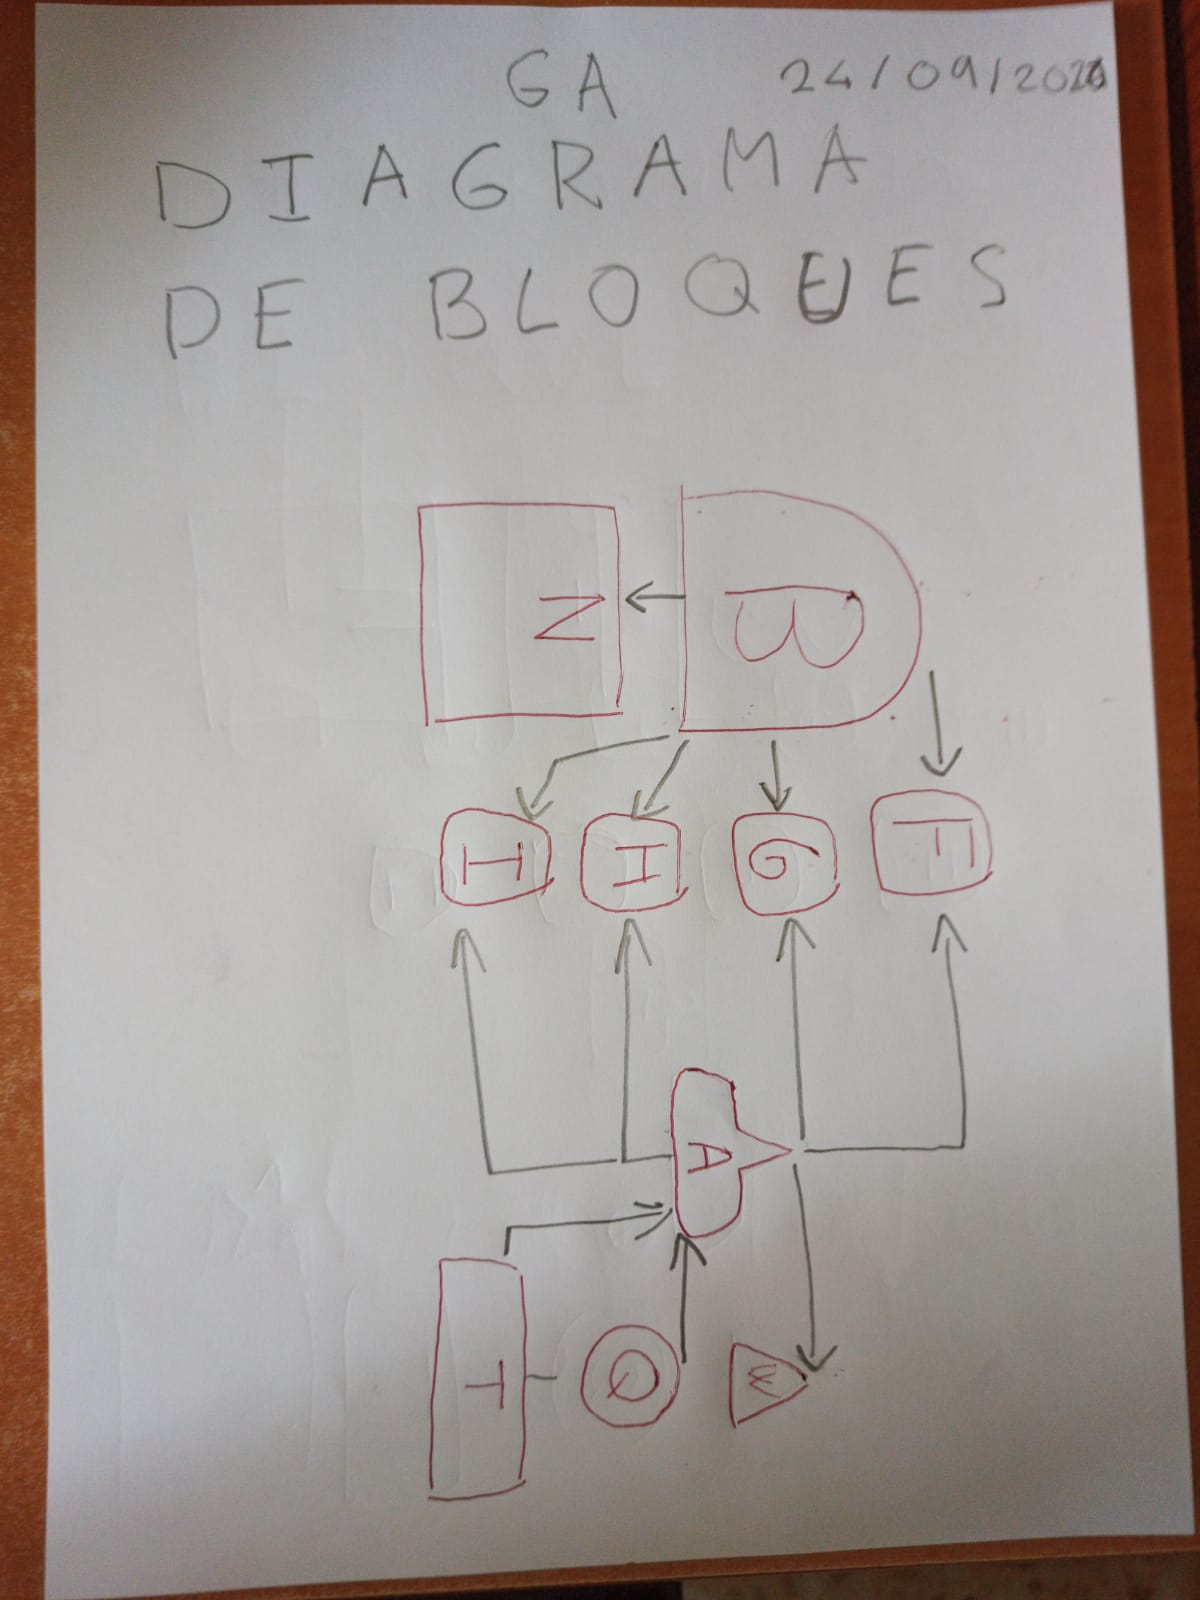 GA 24/09/2026
DIAGRAMA
DE BLOQUES
N B
I H G F
A
T Q